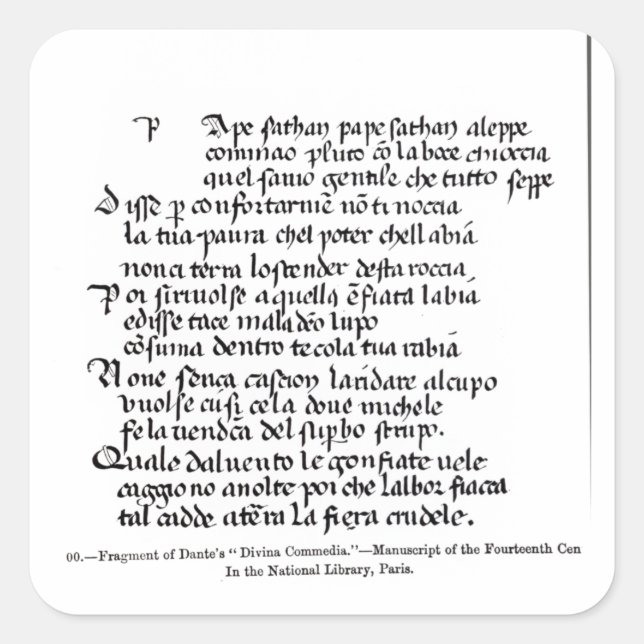 P Ape sathan pape sathan aleppe
cominão pluto cõ la boce chioccia
quel savio gentile che tutto seppe
Disse p confortarmẽ nõ ti noccia
la tua paura chel poter chell abiã
non ci terra lo scender desta roccia
Poi si rivolse a quella ẽfiata labiã
e disse tace maladõ lupo
cõsuma dentro te cola tua rabiã
Non e senca cascion landare al cupo
vuolse cusi cela dove michele
fe la vendcã del supbo strupo.
Quale dal vento le gonfiate vele
caggiono avolte poi che lalbor fiacca
tal cadde a tẽra la fiera crudele.
00.—Fragment of Dante's “Divina Commedia.”—Manuscript of the Fourteenth Cen
In the National Library, Paris.